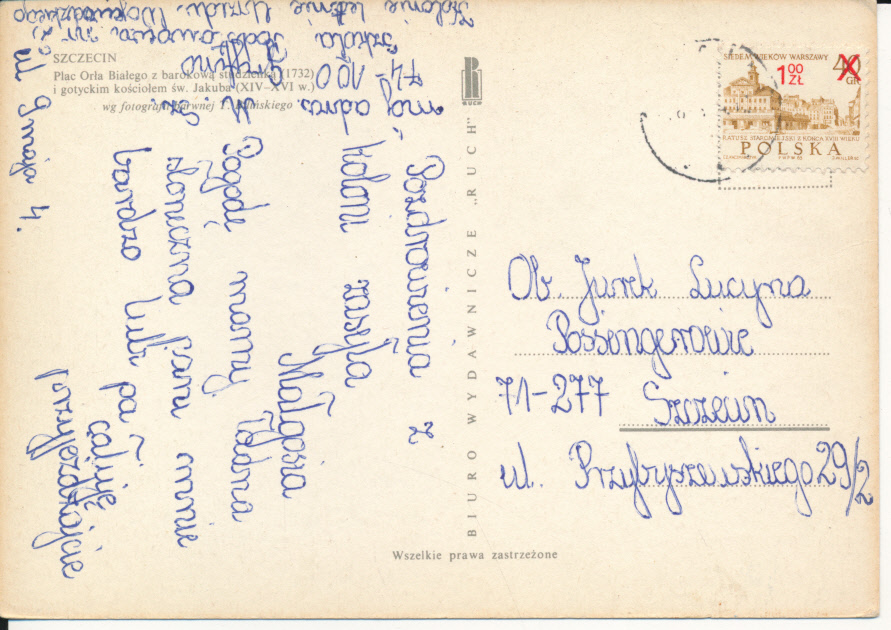 SZCZECIN
Plac Orła Białego z barokową studzienką (1732)
i gotyckim kościołem św. Jakuba (XIV–XVI w.)
wg fotografii barwnej T.
BIURO WYDAWNICZE „RUCH"
RUCH
Wszelkie prawa zastrzeżone
SIEDEM WIEKÓW WARSZAWY
40 GR
1 00 ZŁ
RATUSZ STAROMIEJSKI Z KOŃCA XVIII WIEKU
POLSKA
Ob. Jurek Lucyna
Possengerowie
71-277 Szczecin
ul. Przybyszewskiego 29/2
Pozdrowienia z
koloni zasyła
Małgosia
Pogodę mamy ładna
słoneczna pani mnie
bardzo lubi pa
całuję
przyjeżdżajcie
mój adres
74-100 Gryfino
Szkoła Podstawowa nr 2
ul 9 maja 4.
Kolonie letnie Urzędu Wojewódzkiego